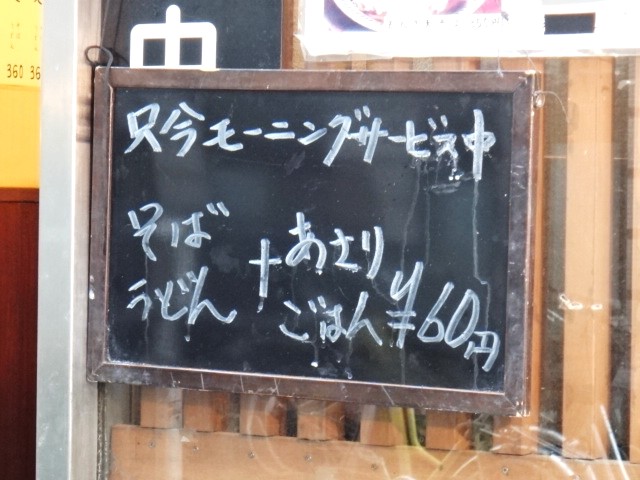 中
360 36
只今モーニングサービス中
そば
うどん
+
あさり
ごはん
¥60円